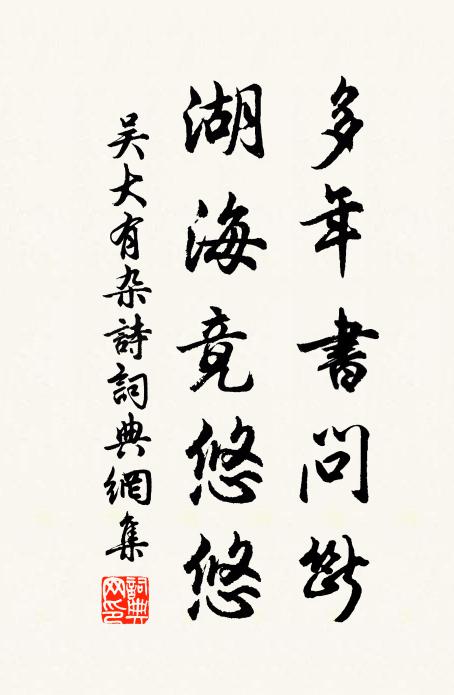 多年書問斷
湖海竟悠悠
吴大有杂詩詞典網集
詞典网印